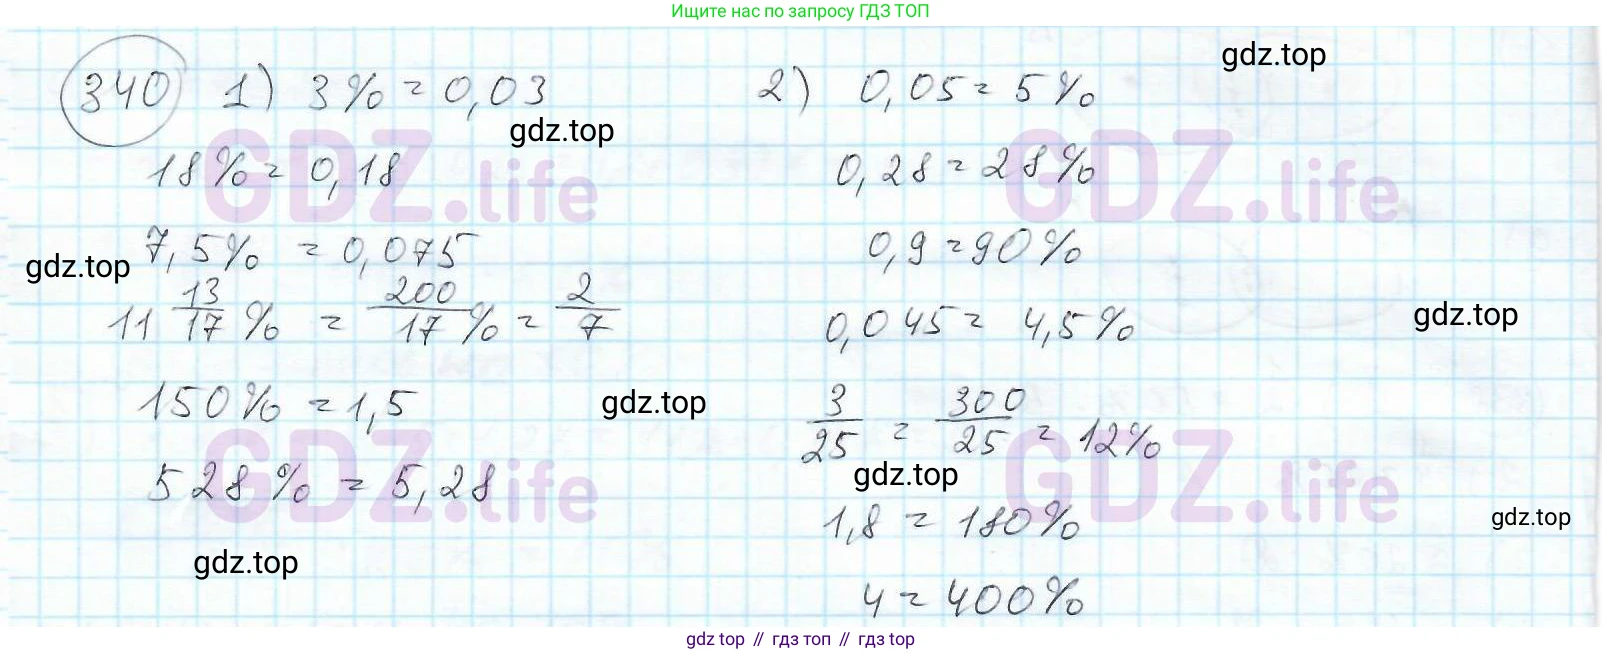 Ищите нас по запросу ГДЗ ТОП
340 1) 3% = 0,03
18% = 0,18
7,5% = 0,075
11 13/17 % = 200/17 % = 2/7
150% = 1,5
528% = 5,28
2) 0,05 = 5%
0,28 = 28%
0,9 = 90%
0,045 = 4,5%
3/25 = 300/25 = 12%
1,8 = 180%
4 = 400%
gdz.top
gdz.top
gdz.top
gdz.top
gdz.top
gdz.top
gdz.top
gdz.top
GDZ.life
GDZ.life
GDZ.life
GDZ.life
gdz top // гдз топ // gdz top